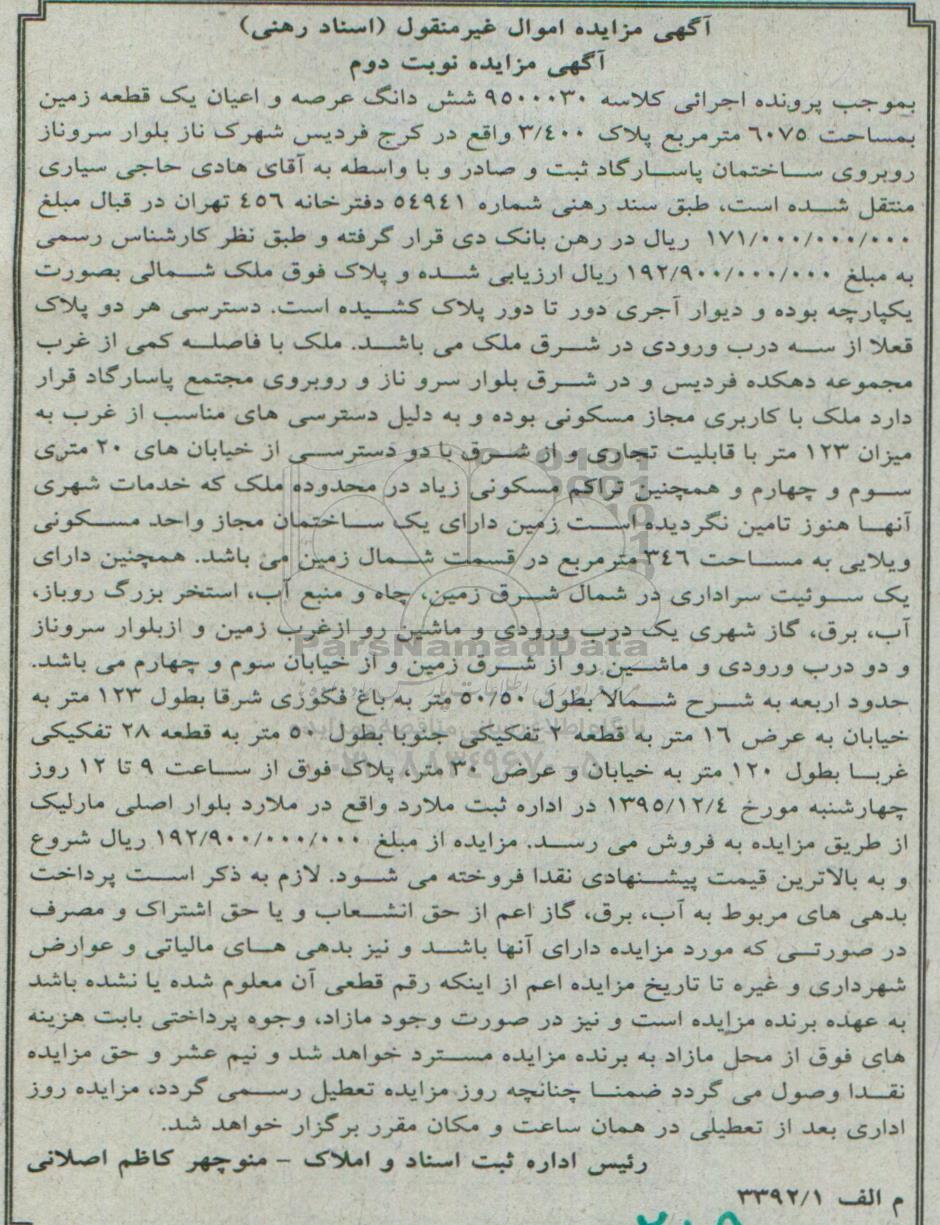 آگهی مزایده اموال غیرمنقول (اسناد رهنی)
آگهی مزایده نوبت دوم
بموجب پرونده اجرائی کلاسه ۹۵۰۰۰۳۰ شش دانگ عرصه و اعیان یک قطعه زمین
بمساحت ۶۰۷۵ مترمربع پلاک ۳/۴۰۰ واقع در کرج فردیس شهرک ناز بلوار سروناز
روبروی ساختمان پاسارگاد ثبت و صادر و با واسطه به آقای هادی حاجی سیاری
منتقل شده است، طبق سند رهنی شماره ۵۴۹۴۱ دفترخانه ۴۵۶ تهران در قبال مبلغ
۱۷۱/۰۰۰/۰۰۰/۰۰۰ ریال در رهن بانک دی قرار گرفته و طبق نظر کارشناس رسمی
به مبلغ ۱۹۲/۹۰۰/۰۰۰/۰۰۰ ریال ارزیابی شده و پلاک فوق ملک شمالی بصورت
یکپارچه بوده و دیوار آجری دور تا دور پلاک کشیده است. دسترسی هر دو پلاک
قعلا از سه درب ورودی در شرق ملک می باشد. ملک با فاصله کمی از غرب
مجموعه دهکده فردیس و در شرق بلوار سرو ناز و روبروی مجتمع پاسارگاد قرار
دارد ملک با کاربری مجاز مسکونی بوده و به دلیل دسترسی های مناسب از غرب به
میزان ۱۲۳ متر با قابلیت تجاری و از شرق با دو دسترسی از خیابان های ۲۰ متری
سوم و چهارم و همچنین تراکم مسکونی زیاد در محدوده ملک که خدمات شهری
آنها هنوز تامین نگردیده است زمین دارای یک ساختمان مجاز واحد مسکونی
ویلایی به مساحت ۳۴۶ مترمربع در قسمت شمال زمین می باشد. همچنین دارای
یک سوئیت سراداری در شمال شرق زمین، چاه و منبع آب، استخر بزرگ روباز،
آب، برق، گاز شهری یک درب ورودی و ماشین رو ازغرب زمین و ازبلوار سروناز
ParsNamadData
و دو درب ورودی و ماشین رو از شرق زمین و از خیابان سوم و چهارم می باشد.
حدود اربعه به شرح شمالا بطول ۵۰/۵۰ متر به باغ فکوری شرقا بطول ۱۲۳ متر به
خیابان به عرض ۱۶ متر به قطعه ۲ تفکیکی جنوبا بطول ۵۰ متر به قطعه ۲۸ تفکیکی
غربا بطول ۱۲۰ متر به خیابان و عرض ۳۰ متر، پلاک فوق از ساعت ۹ تا ۱۲ روز
چهارشنبه مورخ ۱۳۹۵/۱۲/۴ در اداره ثبت ملارد واقع در ملارد بلوار اصلی مارلیک
از طریق مزایده به فروش می رسد. مزایده از مبلغ ۱۹۲/۹۰۰/۰۰۰/۰۰۰ ریال شروع
و به بالاترین قیمت پیشنهادی نقدا فروخته می شود. لازم به ذکر است پرداخت
بدهی های مربوط به آب، برق، گاز اعم از حق انشعاب و یا حق اشتراک و مصرف
در صورتی که مورد مزایده دارای آنها باشد و نیز بدهی های مالیاتی و عوارض
شهرداری و غیره تا تاریخ مزایده اعم از اینکه رقم قطعی آن معلوم شده یا نشده باشد
به عهده برنده مزایده است و نیز در صورت وجود مازاد، وجوه پرداختی بابت هزینه
های فوق از محل مازاد به برنده مزایده مسترد خواهد شد و نیم عشر و حق مزایده
نقدا وصول می گردد ضمنا چنانچه روز مزایده تعطیل رسمی گردد، مزایده روز
اداری بعد از تعطیلی در همان ساعت و مکان مقرر برگزار خواهد شد.
رئیس اداره ثبت اسناد و املاک - منوچهر کاظم اصلانی
م الف ۳۳۹۲/۱